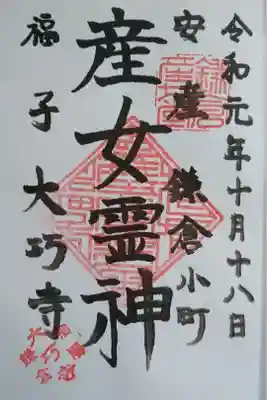 令和元年十月十八日
安産 鎌倉小町
産女霊神
福子 大巧寺